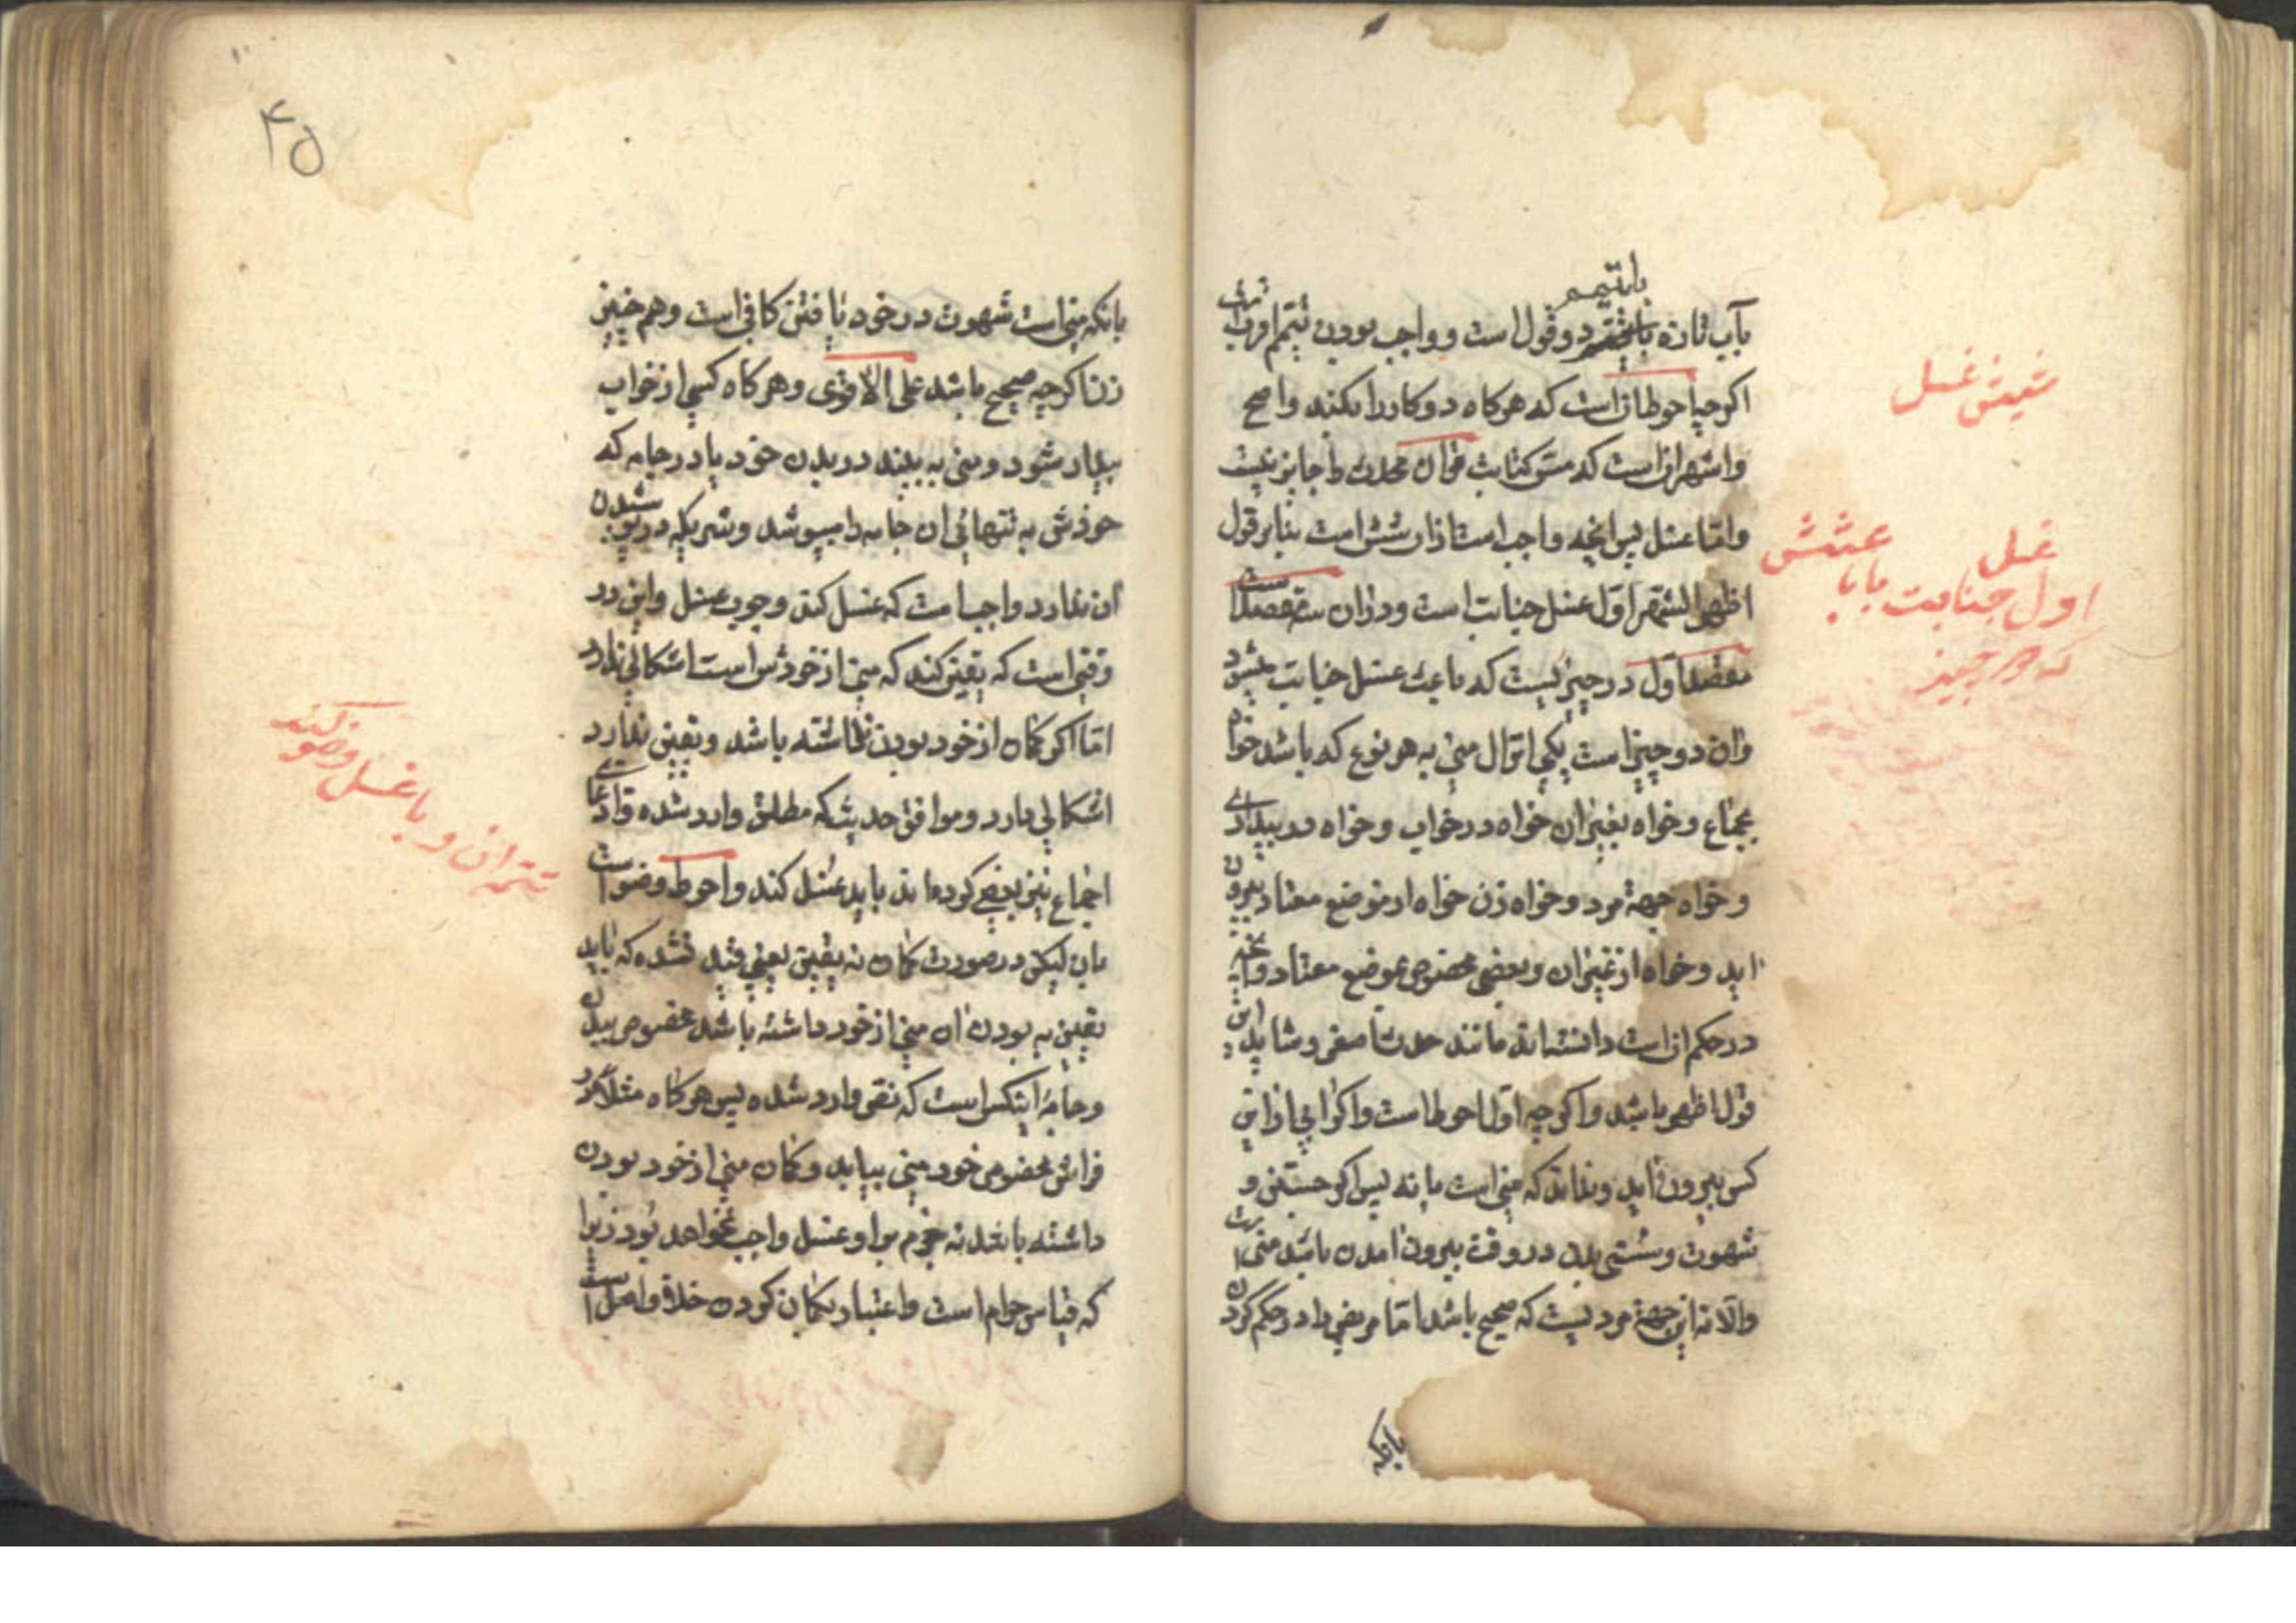 باتیمم
بآب تازه یا تیمم دو قول است و واجب بودن تیمم اقرب است
اکرچه احوط ان است که هرکاه دو کار را بکند واصح
واشهر ان است که مس کتابت قران محدث را جایز نیست
واما غسل پس انچه واجب است از ان شش است بنابر قول
اظهر اشهر اول غسل جنابت است ودر ان سه مقصد است
مقصد اول در چیزیست که باعث غسل جنابت میشود
وان دو چیز است یکی انزال منی به هر نوع که باشد خواه
بجماع و خواه بغیر ان خواه در خواب و خواه در بیداری
و خواه جهة مرد و خواه زن خواه از موضع معتاد بیرون
اید و خواه از غیر ان وبعضی مخصوص بموضع معتاد وانچه
در حکم ان است دانسته اند مانند حدث اصغر و شاید این
قول اظهر باشد واکرچه اول احوط است واکر ابی از این
کس بیرون اید و نداند که منی است یا نه پس اکر جستن و
شهوت و سستی بدن در وقت بیرون امدن باشد منی است
والا نه این جهة مرد یست که صحیح باشد اما مریض را در حکم کردن
بانکه
شیش غسل
غسل
اول جنابت بابا
که در چیز
۴۵
بانکه منی است شهوت در خود یافتن کافی است وهم چنین
زن اکرچه صحیح باشد علی الاقوی وهرکاه کسی از خواب
بیدار شود و منی به بیند در بدن خود یا در جامه که
خودش به تنهائی ان جامه را میپوشد و شریکی در پوشیدن
ان ندارد واجب است که غسل کند وجوب غسل واین در
وقتی است که یقین کند که منی از خودش است اشکالی ندارد
اما اکر کمان از خود بودن داشته باشد ویقین ندارد
اشکالی دارد وموافق حدیثی که مطلق وارد شده وادعای
اجماع نیز بعضی کرده اند باید غسل کند واحوط وضو است
بان لیکن در صورت کمان نه یقین یعنی قید نشده که باید
یقین به بودن ان منی از خود داشته باشد مخصوص بدن
وجامهٔ اینکس است که نص وارد شده پس هرکاه مثلا در
فراش مخصوص خود منی بیابد وکمان منی از خود بودن
داشته باشد نه جزم بر او غسل واجب نخواهد بود زیرا
که قیاس حرام است واعتبار بکمان کردن خلاف اصل است
وبا غسل وضو کند